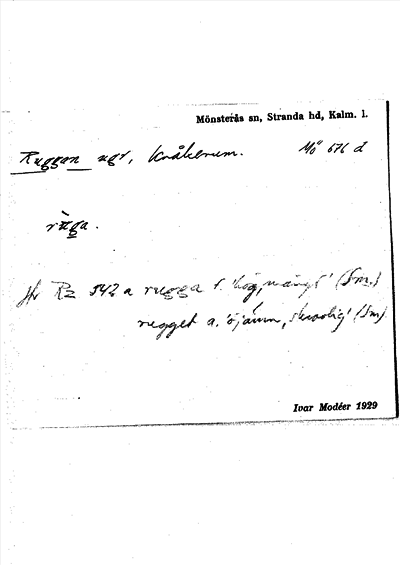 Mönsterås sn, Stranda hd, Kalm. l.
Ruggan ugr, Kråkerum. Mö 676 d
rùga.
Jfr Rz 542 a rugga f. 'hög, mängd' (Sm.)
rugget a. 'ojämn, skrovlig' (Sm)
Ivar Modéer 1929